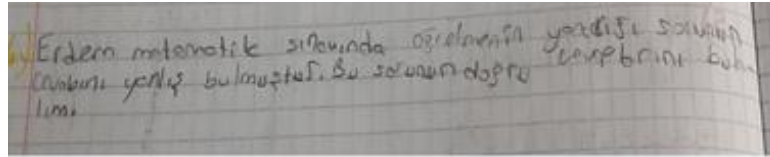 Erdem matematik sınavında öğretmenin yazdığı sorunun
cevabını yanlış bulmuştur. Bu sorunun doğru cevaplarını bula
lım.